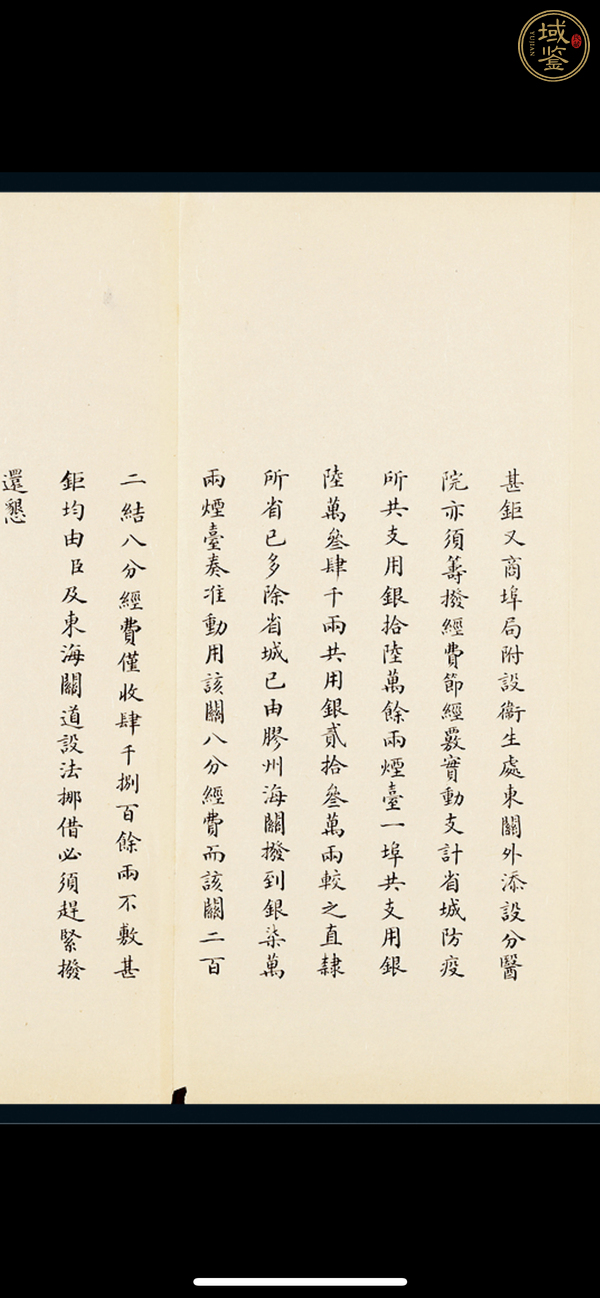 域鉴
YUJIAN
甚鉅又商埠局附設衞生處東關外添設分醫
院亦須籌撥經費節經覈實動支計省城防疫
所共支用銀拾陸萬餘兩煙臺一埠共支用銀
陸萬叄肆千兩共用銀貳拾叄萬兩較之直隸
所省已多除省城已由膠州海關撥到銀柒萬
兩煙臺奏准動用該關八分經費而該關二百
二結八分經費僅收肆千捌百餘兩不敷甚
鉅均由臣及東海關道設法挪借必須趕緊撥
還懇